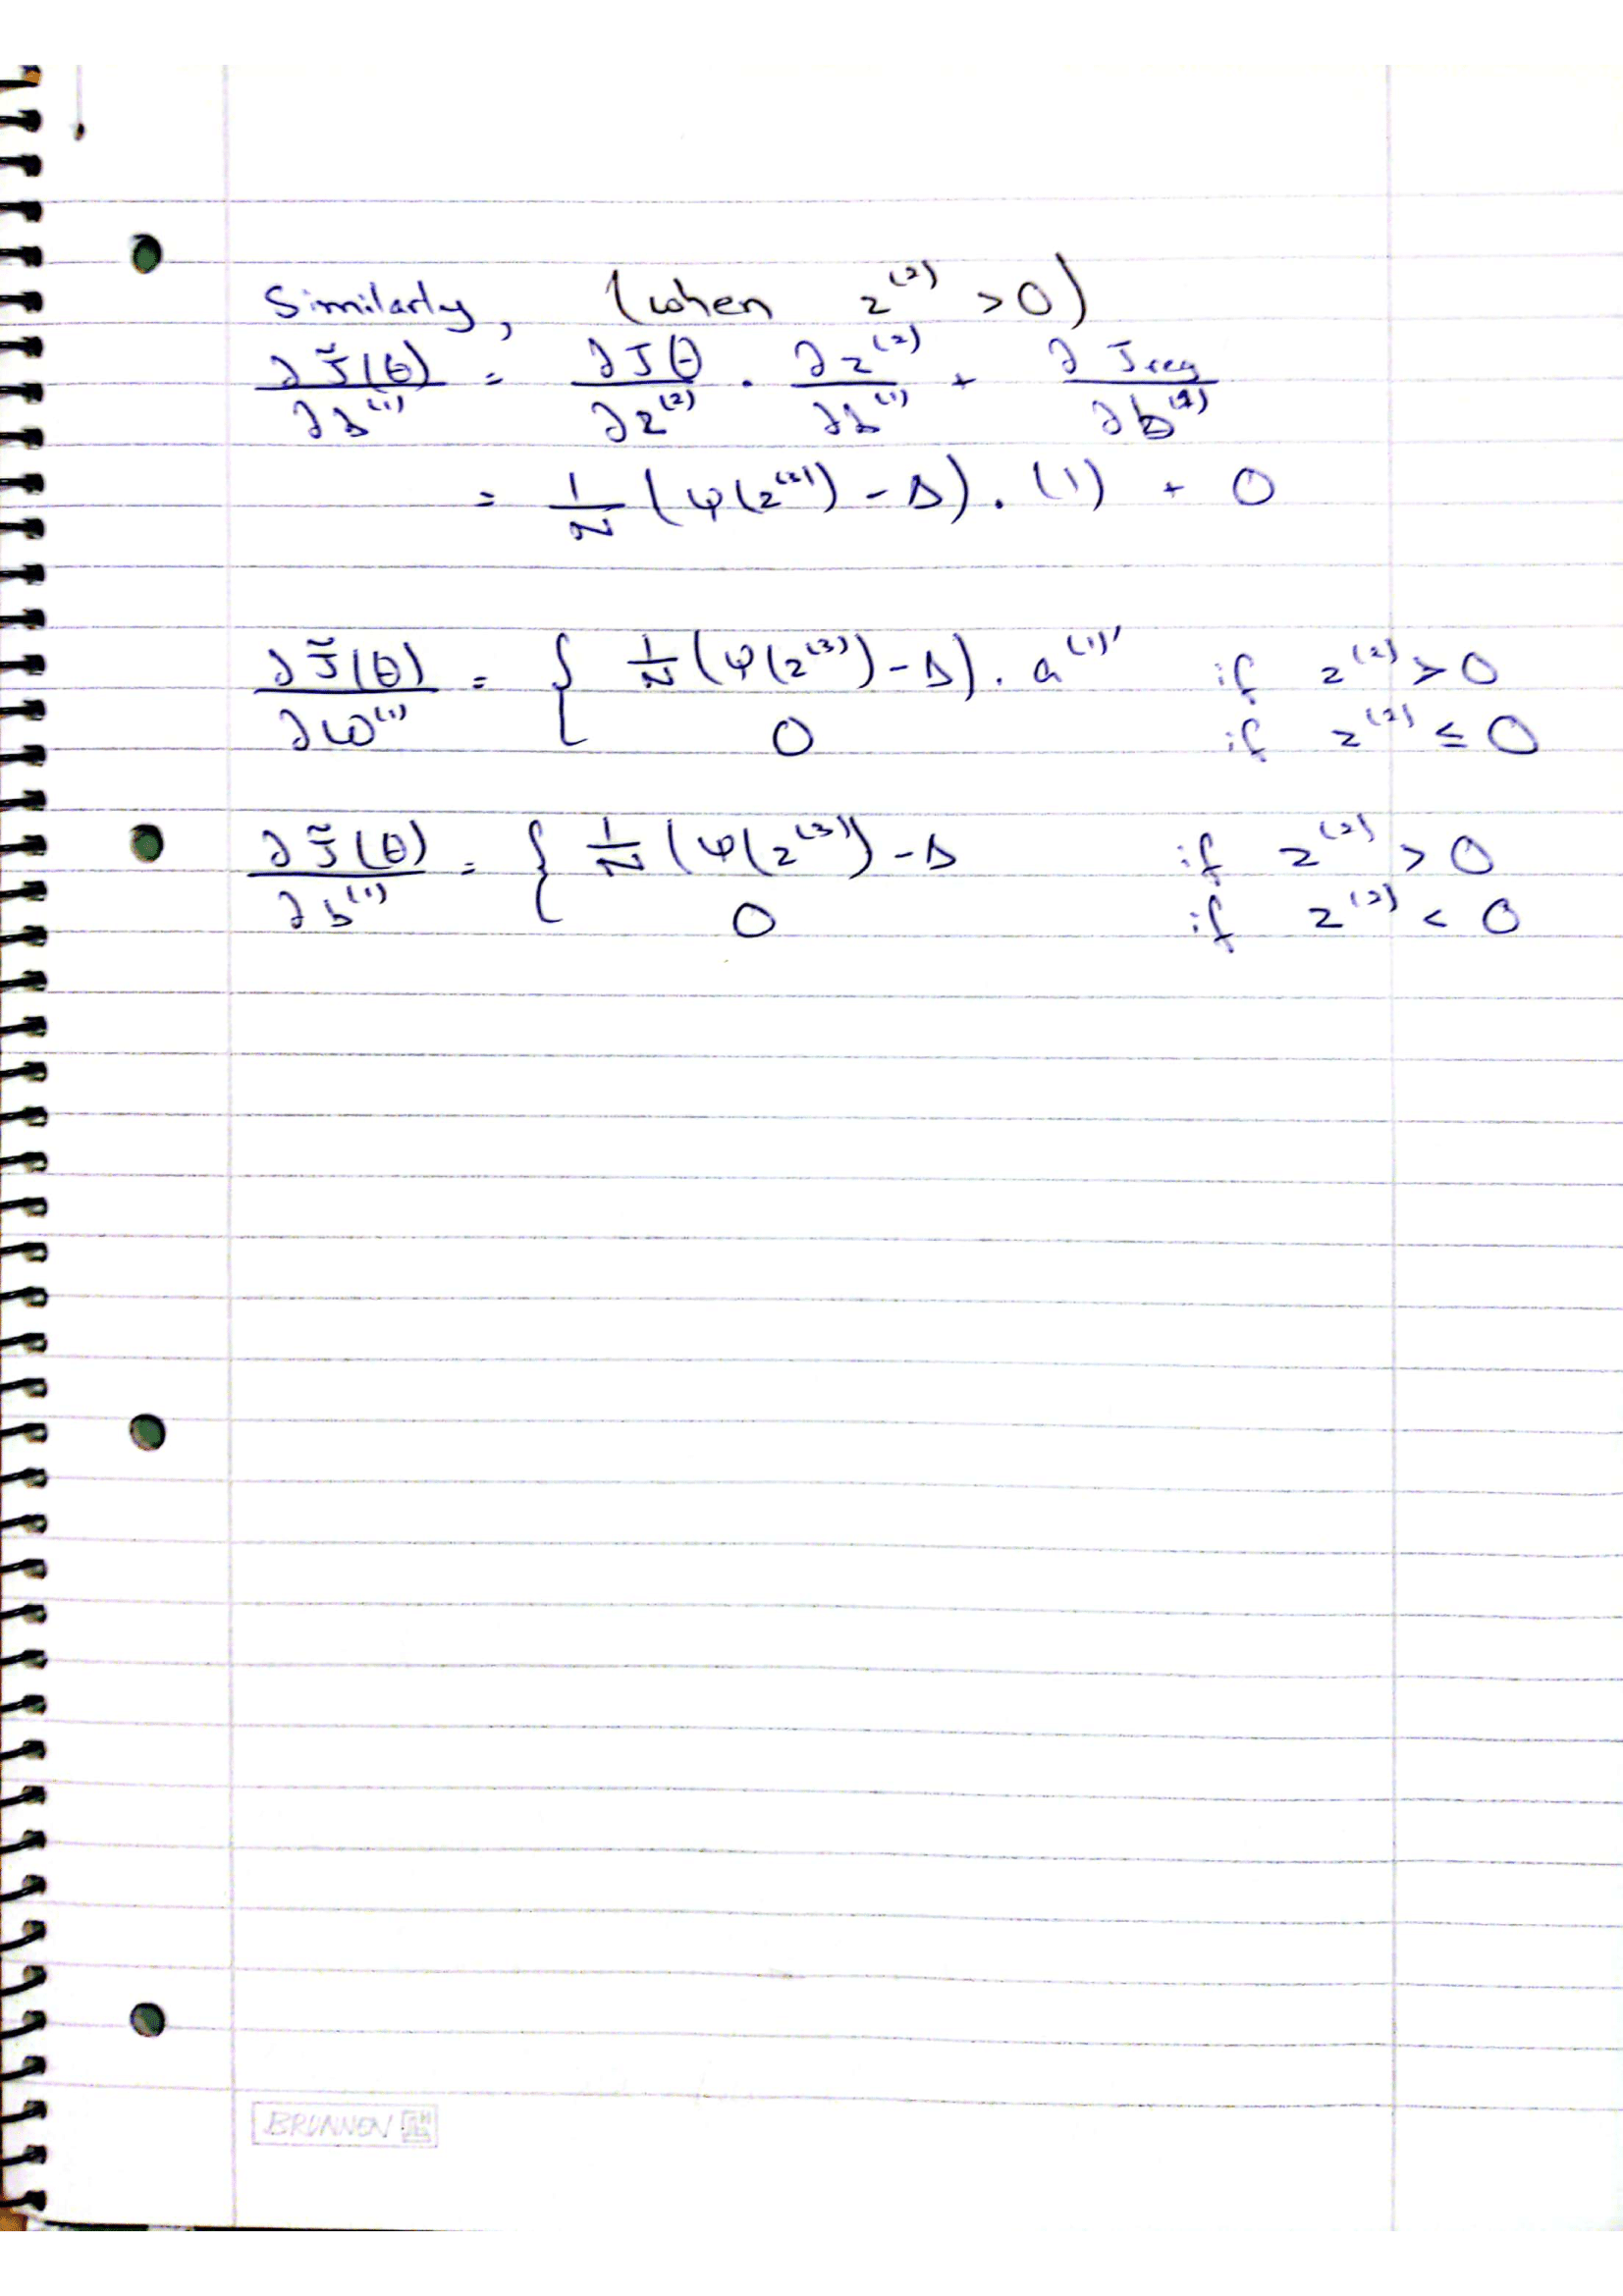 Similarly, (when z⁽²⁾ > 0)
∂J̃(θ)/∂b⁽¹⁾ = ∂Jθ/∂z⁽²⁾ · ∂z⁽²⁾/∂b⁽¹⁾ + ∂Jreg/∂b⁽¹⁾
= 1/N (ψ(z⁽³⁾) - Δ) . (1) + 0
∂J̃(θ)/∂W⁽¹⁾ = { 1/N (ψ(z⁽³⁾) - Δ) . a⁽¹⁾' if z⁽²⁾ > 0
0 if z⁽²⁾ ≤ 0
∂J̃(θ)/∂b⁽¹⁾ = { 1/N (ψ(z⁽³⁾) - Δ if z⁽²⁾ > 0
0 if z⁽²⁾ < 0
BRUNNEN